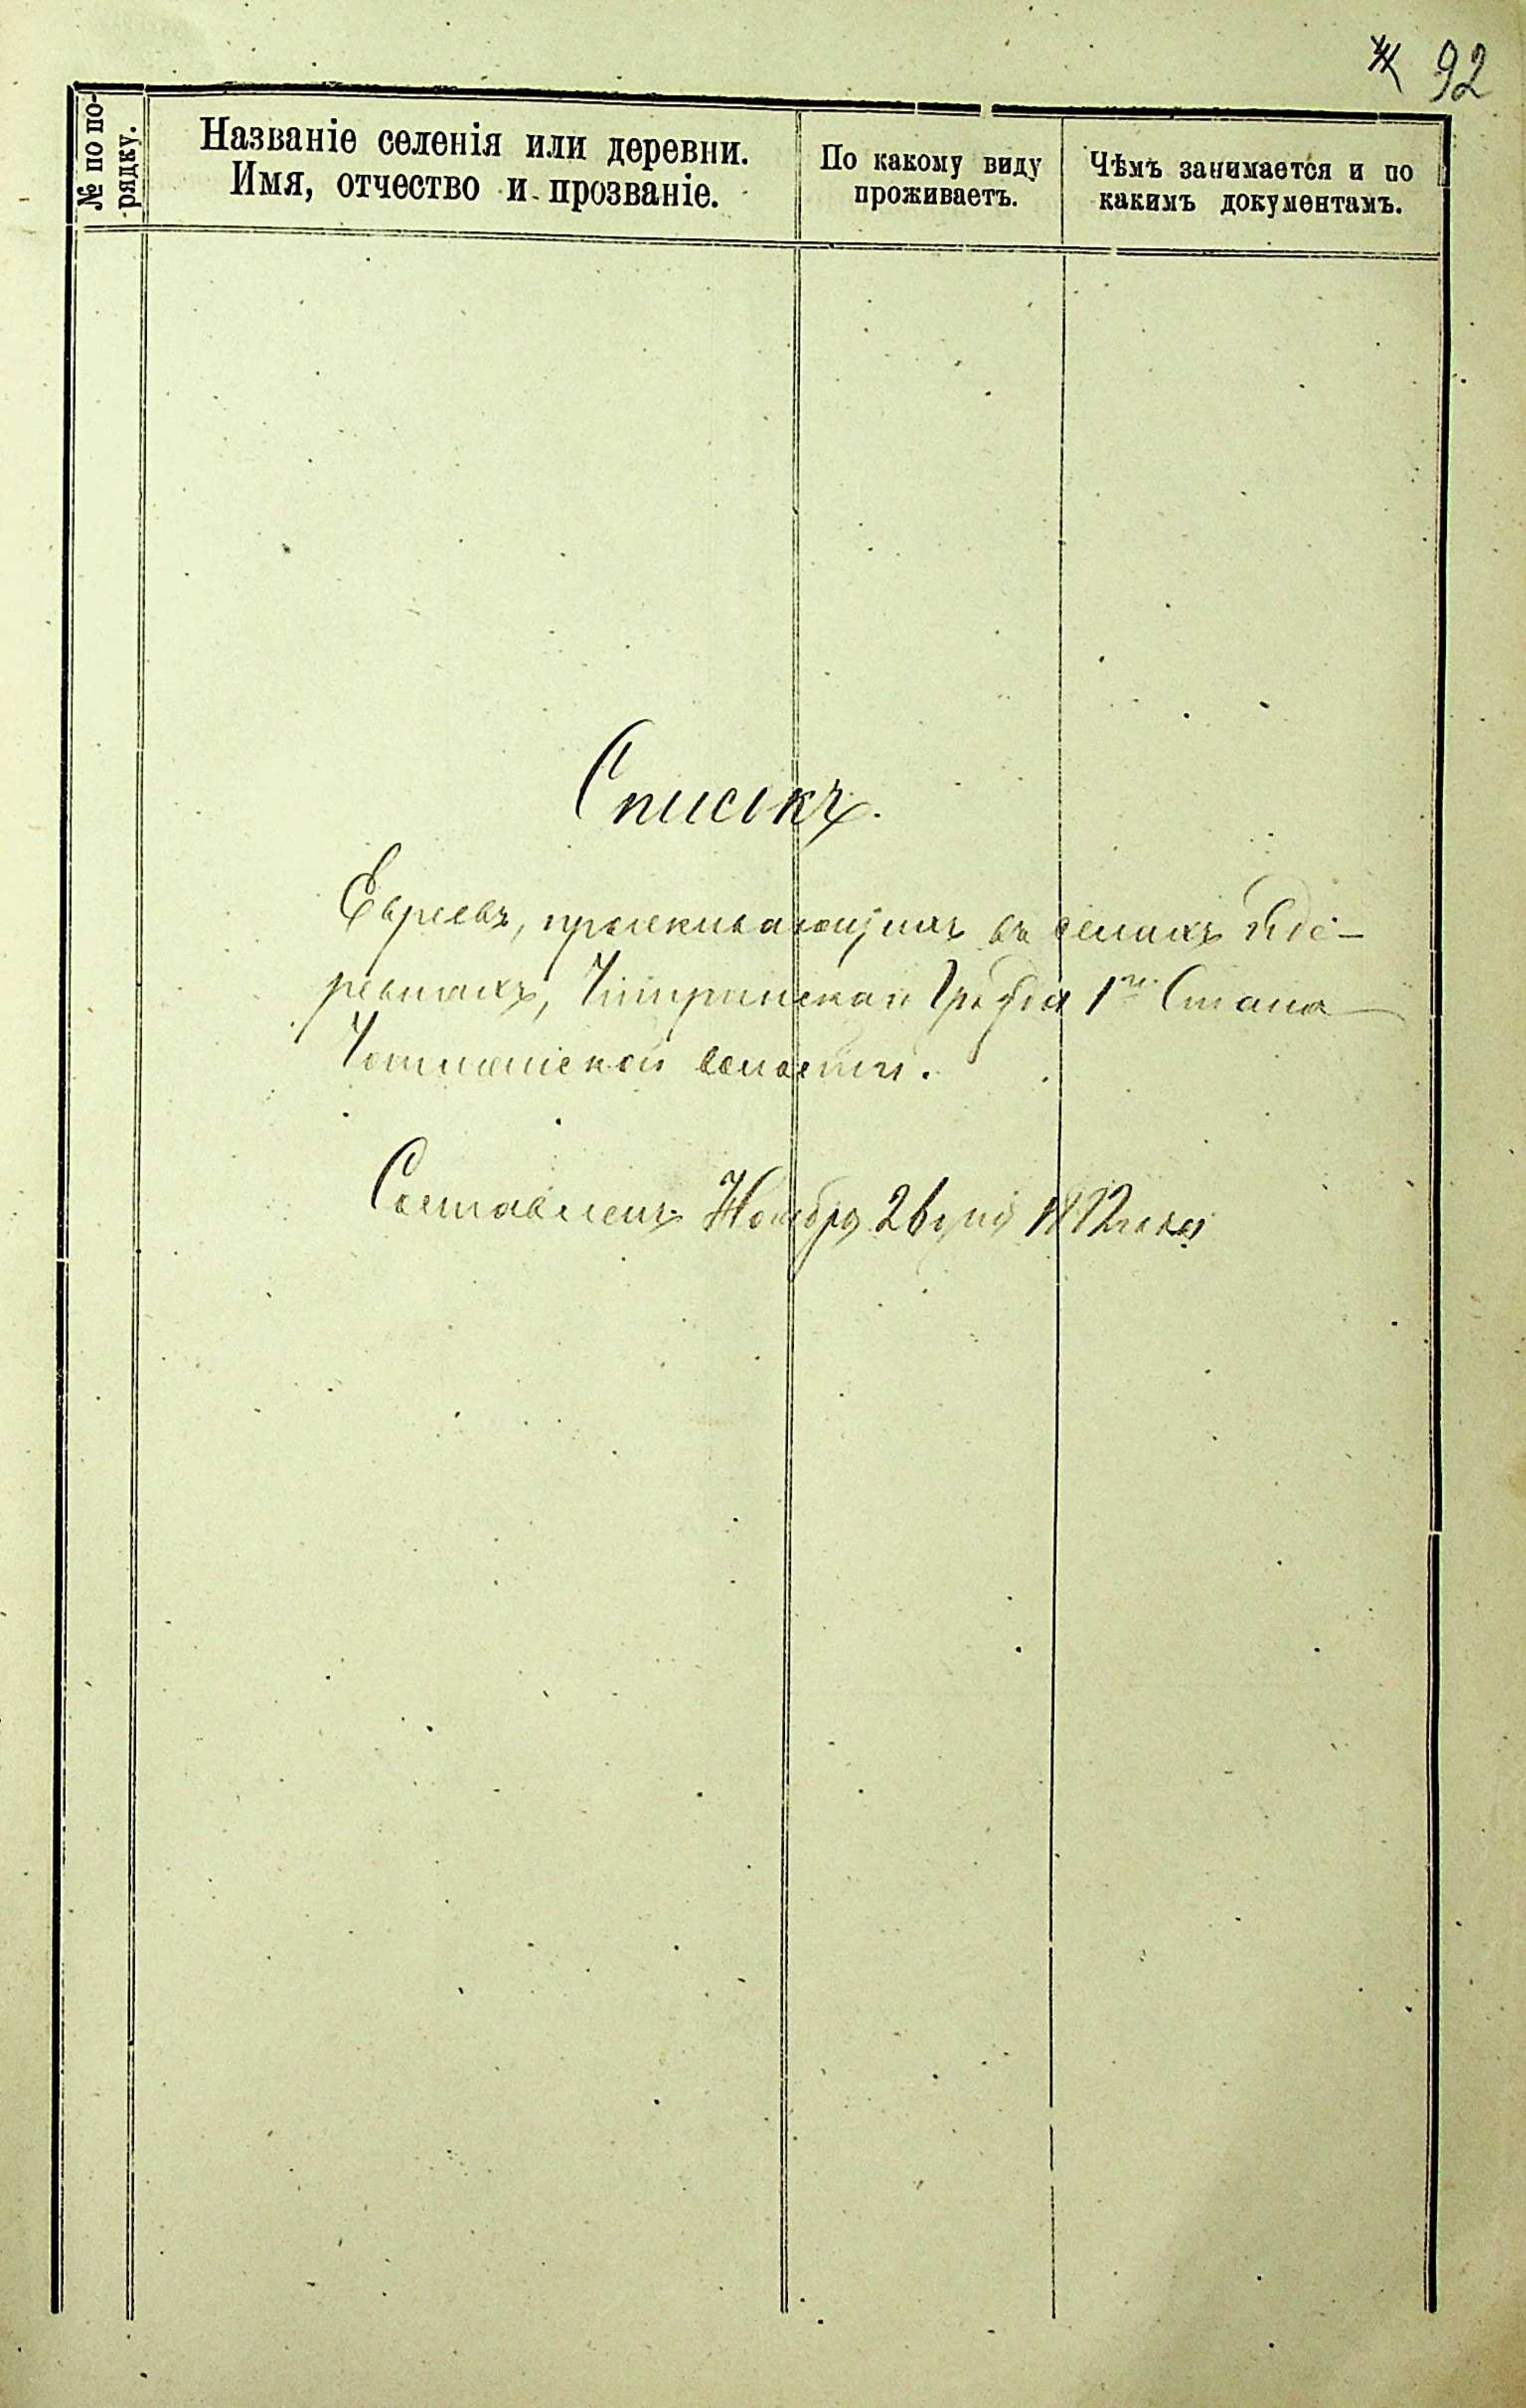 92
№ по по-
рядку.
Названіе селенія или деревни.
Имя, отчество и прозваніе.
По какому виду
проживаетъ.
Чѣмъ занимается и по
какимъ документамъ.
Списокъ.
Евреевъ, проживающихъ въ селахъ и де-
ревняхъ, 1го Стана
волости.
Составленъ Ноября 26 дня года